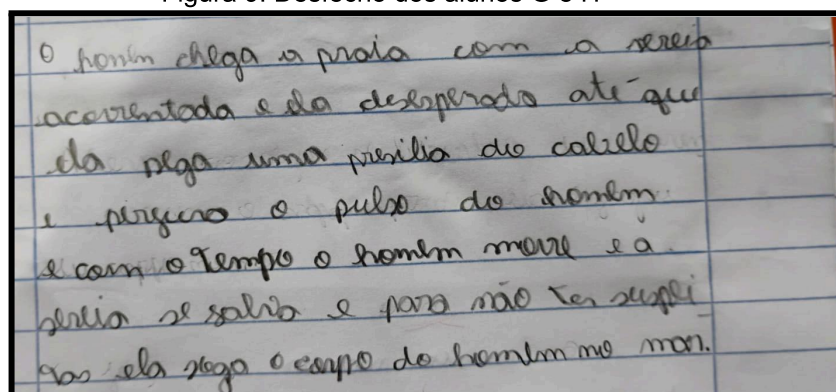 O homem chega a praia com a sereia
acorrentada e ela desesperada até que
ela pega uma presilia do cabelo
e o pulso do homem
e com o tempo o homem morre e a
sereia se salva e para não ter suspei
tas ela joga o corpo do homem no mar.